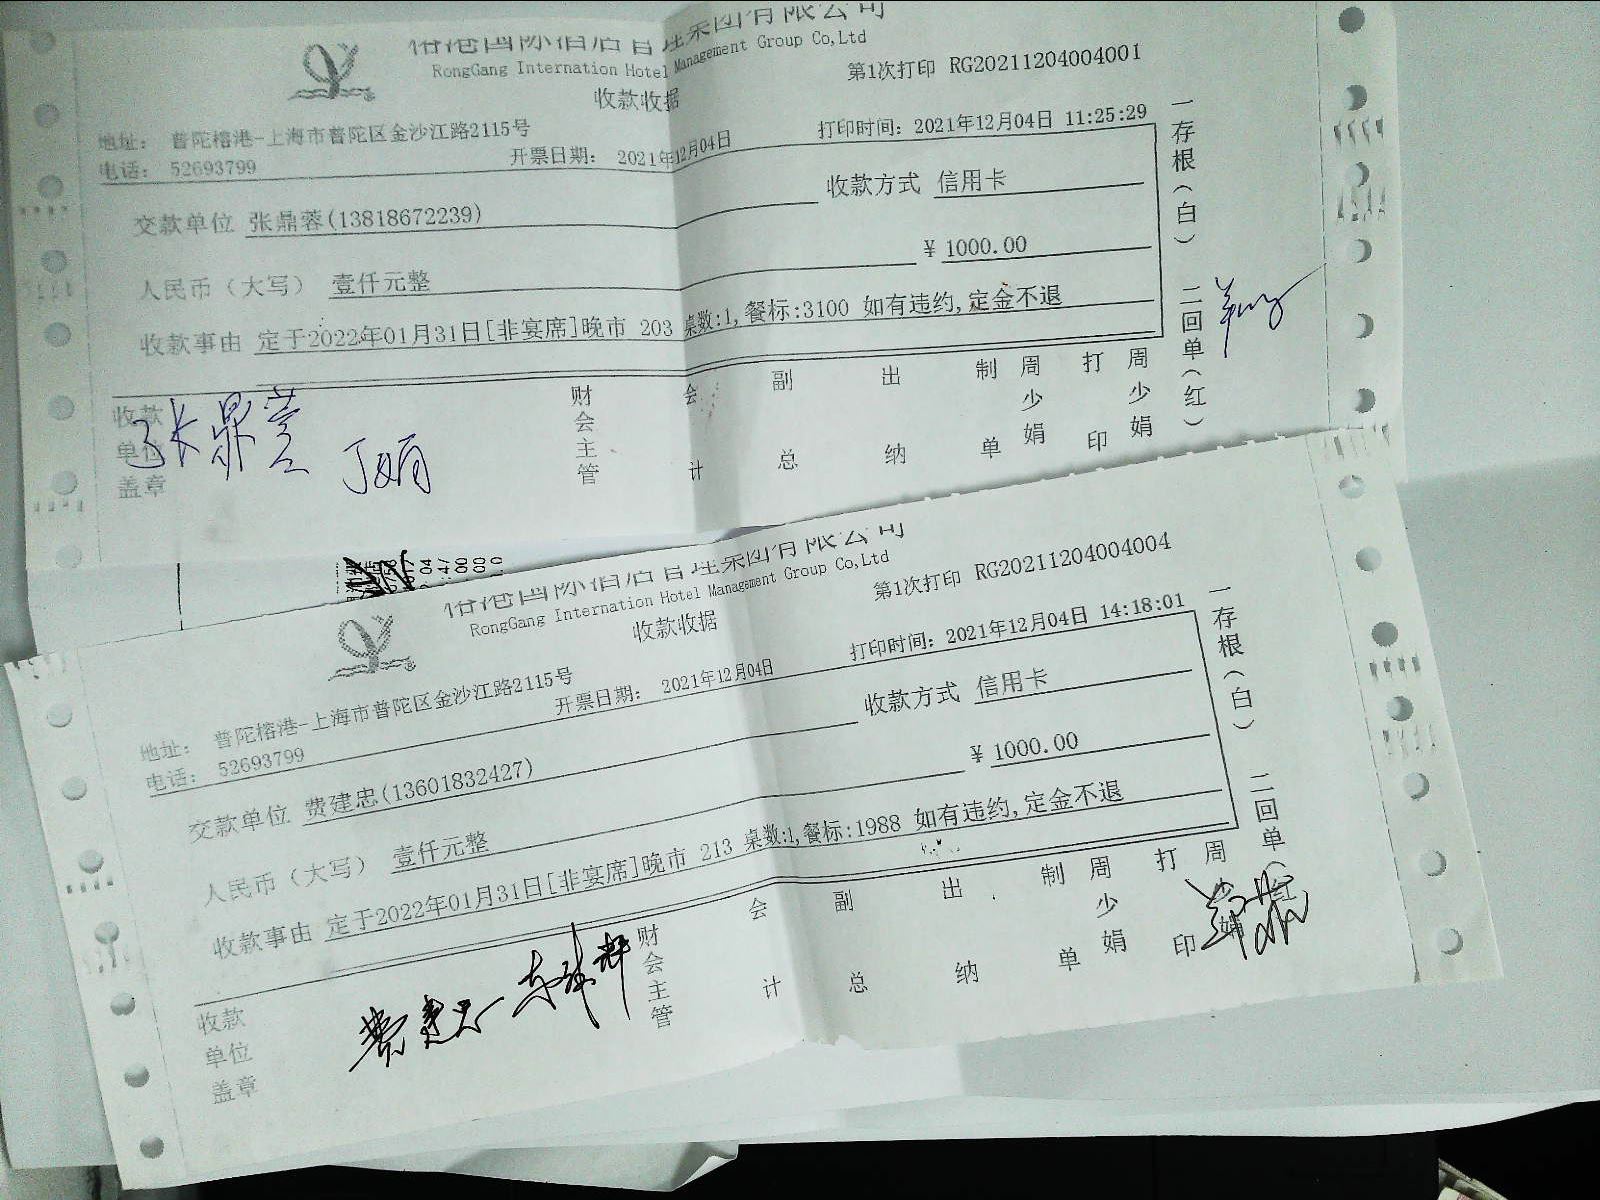 榕港国际酒店管理集团有限公司
RongGang Internation Hotel Management Group Co,Ltd
收款收据
第1次打印 RG20211204004001
地址: 普陀榕港-上海市普陀区金沙江路2115号
电话: 52693799
开票日期: 2021年12月04日
打印时间: 2021年12月04日 11:25:29
交款单位 张鼎蓉(13818672239)
收款方式 信用卡
人民币（大写） 壹仟元整
¥ 1000.00
收款事由 定于2022年01月31日[非宴席]晚市 203 桌数:1,餐标:3100 如有违约,定金不退
收款单位盖章
财会主管
会计
副总
出纳
制单
周少娟
打印
周少娟
一存根(白) 二回单(红)
榕港国际酒店管理集团有限公司
RongGang Internation Hotel Management Group Co,Ltd
收款收据
第1次打印 RG20211204004004
地址: 普陀榕港-上海市普陀区金沙江路2115号
电话: 52693799
开票日期: 2021年12月04日
打印时间: 2021年12月04日 14:18:01
交款单位 费建忠(13601832427)
收款方式 信用卡
人民币（大写） 壹仟元整
¥ 1000.00
收款事由 定于2022年01月31日[非宴席]晚市 213 桌数:1,餐标:1988 如有违约,定金不退
收款单位盖章
费建忠
财会主管
会计
副总
出纳
制单
周少娟
打印
周少娟
一存根(白) 二回单(红)